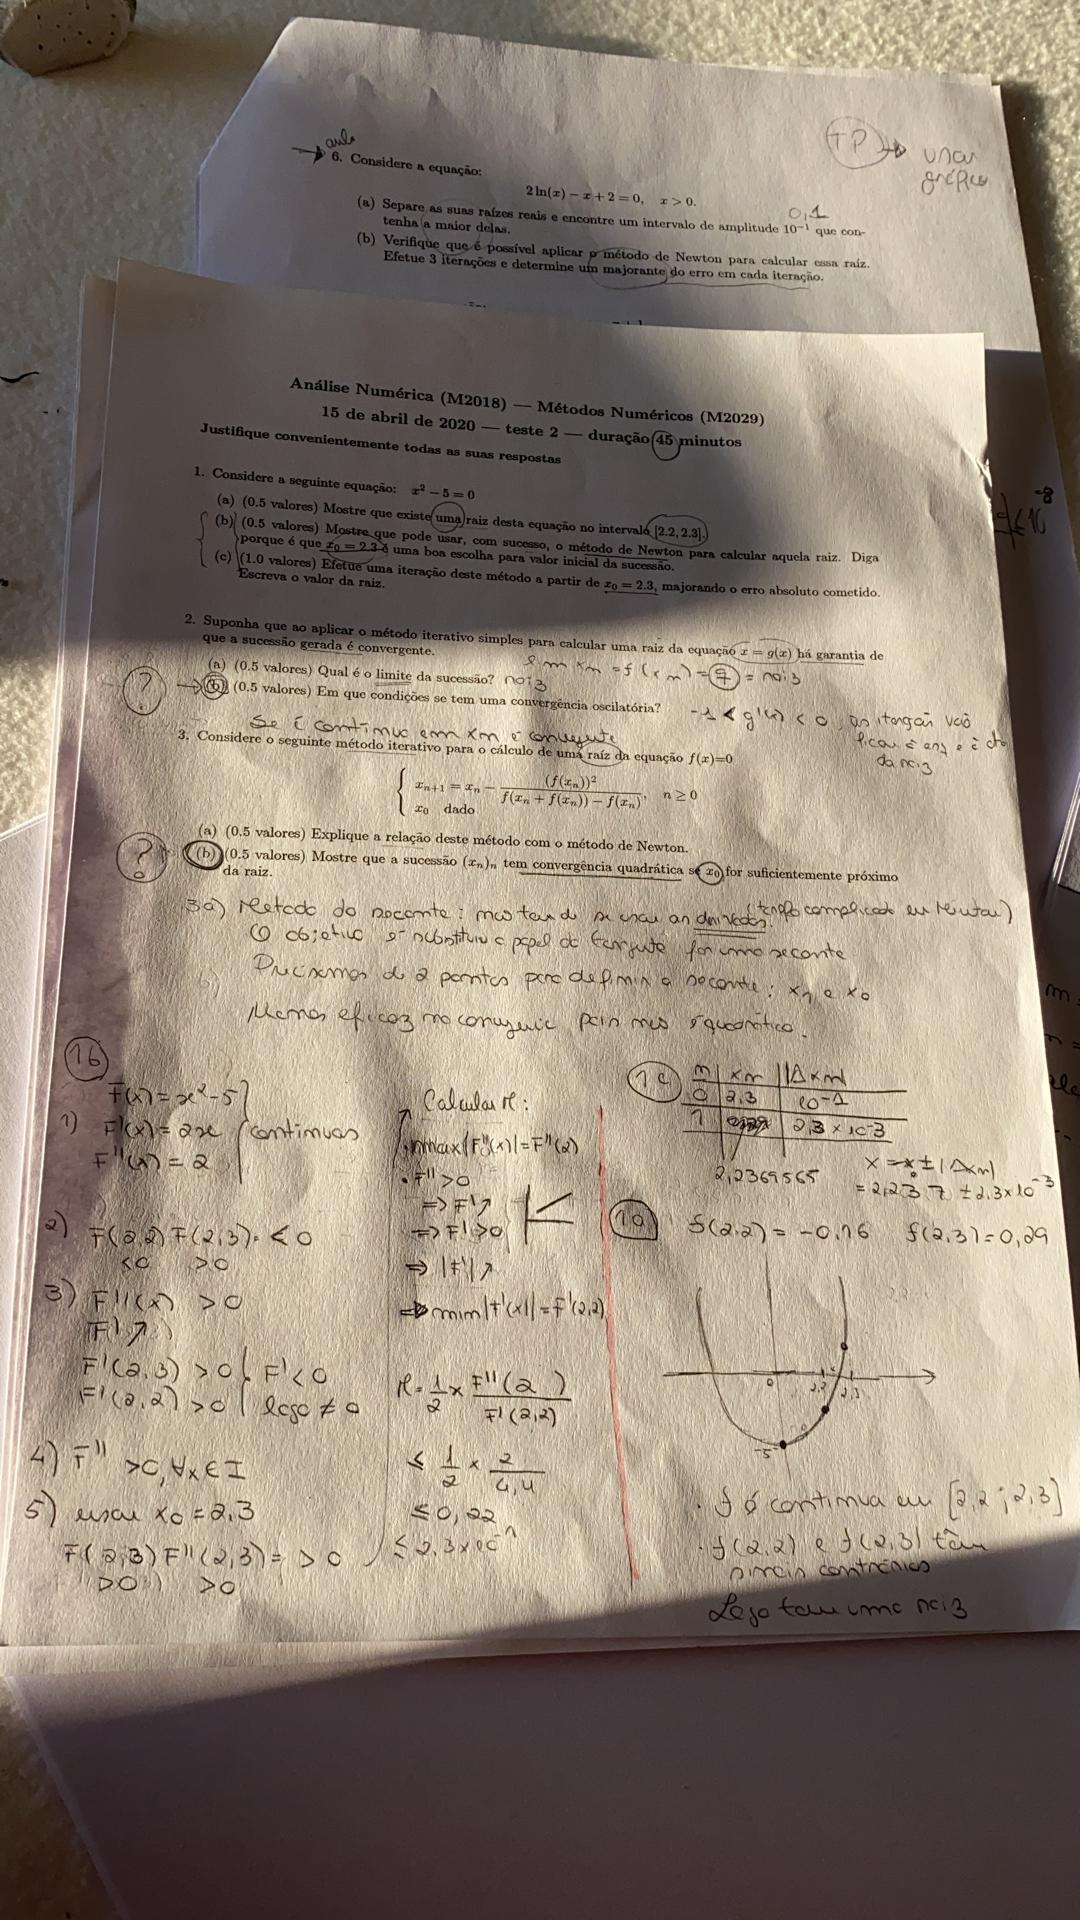 aula
TP → usar
gráfico
→ 6. Considere a equação:
2 ln(x) − x + 2 = 0, x > 0.
0,1
(a) Separe as suas raízes reais e encontre um intervalo de amplitude 10⁻¹ que con-
tenha a maior delas.
(b) Verifique que é possível aplicar o método de Newton para calcular essa raíz.
Efetue 3 iterações e determine um majorante do erro em cada iteração.
Análise Numérica (M2018) — Métodos Numéricos (M2029)
15 de abril de 2020 — teste 2 — duração 45 minutos
Justifique convenientemente todas as suas respostas
1. Considere a seguinte equação: x² − 5 = 0
(a) (0.5 valores) Mostre que existe uma raiz desta equação no intervalo [2.2, 2.3].
(b) (0.5 valores) Mostre que pode usar, com sucesso, o método de Newton para calcular aquela raiz. Diga
porque é que x₀ = 2.3 é uma boa escolha para valor inicial da sucessão.
(c) (1.0 valores) Efetue uma iteração deste método a partir de x₀ = 2.3, majorando o erro absoluto cometido.
Escreva o valor da raiz.
2. Suponha que ao aplicar o método iterativo simples para calcular uma raiz da equação x = g(x) há garantia de
que a sucessão gerada é convergente.
(a) (0.5 valores) Qual é o limite da sucessão? raiz
? → (b) (0.5 valores) Em que condições se tem uma convergência oscilatória? −1 < g'(x) < 0
Se é contínua em xn e
da raiz
3. Considere o seguinte método iterativo para o cálculo de uma raíz da equação f(x)=0
{ xₙ₊₁ = xₙ − (f(xₙ))² / (f(xₙ + f(xₙ)) − f(xₙ)), n ≥ 0
x₀ dado
(a) (0.5 valores) Explique a relação deste método com o método de Newton.
? (b) (0.5 valores) Mostre que a sucessão (xₙ)ₙ tem convergência quadrática se x₀ for suficientemente próximo
da raiz.
3a) Método da secante:
O objetivo é substituir o papel da tangente por uma secante
Precisamos de 2 pontos para definir a secante: x1 e x0
Menos eficaz
1b
F(x) = x² − 5
1) F'(x) = 2x contínuas
F''(x) = 2
2) F(2,2) F(2,3) = < 0
<0 >0
3) F''(x) > 0
F' ↗
F'(2,3) > 0 F' < 0
F'(2,2) > 0 logo ≠ 0
4) F'' > 0, ∀x ∈ I
5) usar x0 = 2,3
F(2,3) F''(2,3) = > 0
>0 >0
Calcular M:
max|F''(x)| = F''(2)
• F'' > 0
⇒ F' ↗
⇒ F' > 0
⇒ |F'| ↗
⇒ min|F'(x)| = F'(2,2)
M = 1/2 × F''(2) / F'(2,2)
≤ 1/2 × 2/4,4
≤ 0,22
≤ 2,3×10⁻¹
1c
n xn |Δxn|
0 2,3 10⁻¹
1 2,3 × 10⁻³
2,2369565
= 2,237 ± 2,3×10⁻³
1a f(2,2) = −0,16 f(2,3) = 0,29
0 2,2 2,3
−5
• f é contínua em [2,2 ; 2,3]
• f(2,2) e f(2,3) têm
sinais contrários
Logo tem uma raiz